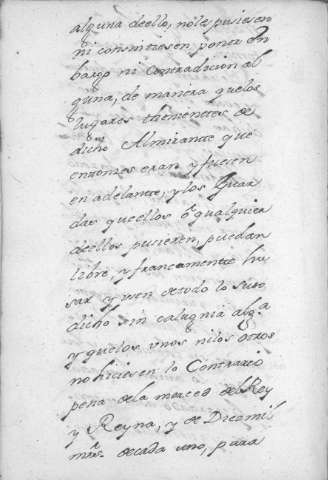 alguna de ello, no le pusiesen
ni consintiesen poner em
bargo ni contradicion al
guna, de manera que los
lugares thenientes de
dicho Almirante que
entonses eran y fuesen
en adelante, y los Guar
das que ellos o qualquiera
de ellos pusieren, puedan
libre y francamente hu
sar y usen de todo lo suso
dicho sin calugnia alga.
y que los unos ni los otros
no hiciesen lo Contrario
pena de la merced del Rey
y Reyna, y de Diez mil
mrs. de cada uno, para